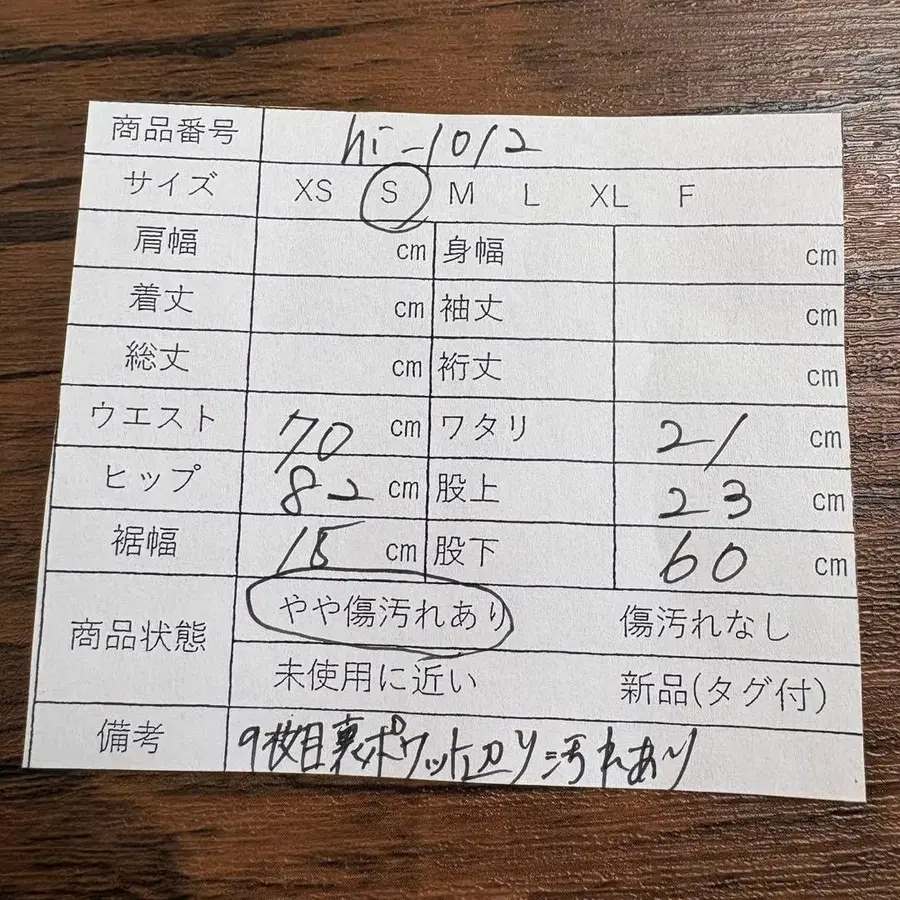 商品番号 hi-1012
サイズ XS S M L XL F
肩幅 cm 身幅 cm
着丈 cm 袖丈 cm
総丈 cm 裄丈 cm
ウエスト 70 cm ワタリ 21 cm
ヒップ 82 cm 股上 23 cm
裾幅 15 cm 股下 60 cm
商品状態 やや傷汚れあり 傷汚れなし
未使用に近い 新品(タグ付)
備考 9枚目裏ポケット辺り汚れあり